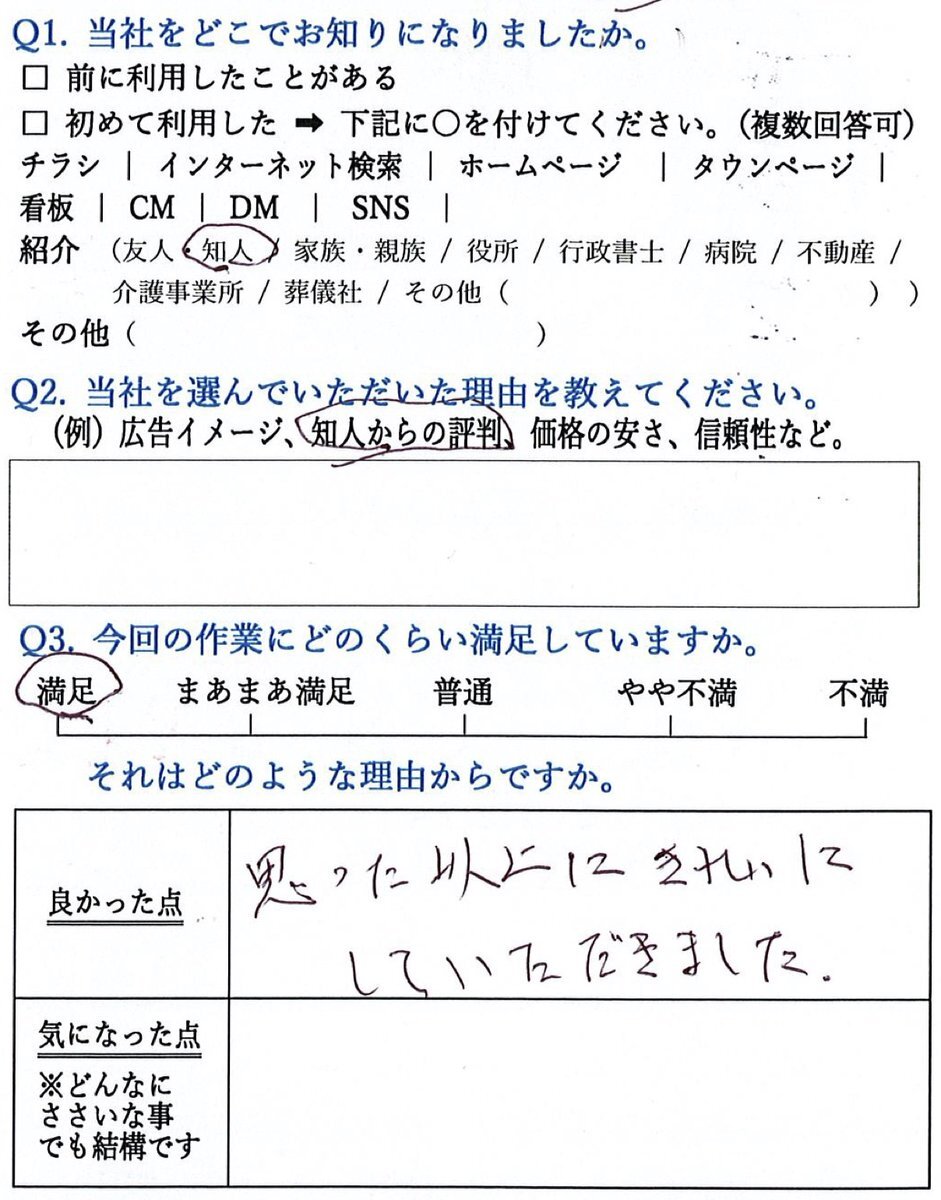 Q1. 当社をどこでお知りになりましたか。
□ 前に利用したことがある
□ 初めて利用した ➡ 下記に〇を付けてください。（複数回答可）
チラシ | インターネット検索 | ホームページ | タウンページ |
看板 | CM | DM | SNS |
紹介 （友人・知人 / 家族・親族 / 役所 / 行政書士 / 病院 / 不動産 /
介護事業所 / 葬儀社 / その他（ ） ）
その他（ ）
Q2. 当社を選んでいただいた理由を教えてください。
（例）広告イメージ、知人からの評判、価格の安さ、信頼性など。
Q3. 今回の作業にどのくらい満足していますか。
満足 まあまあ満足 普通 やや不満 不満
それはどのような理由からですか。
良かった点
思った以上にきれいに
していただきました.
気になった点
※どんなに
ささいな事
でも結構です